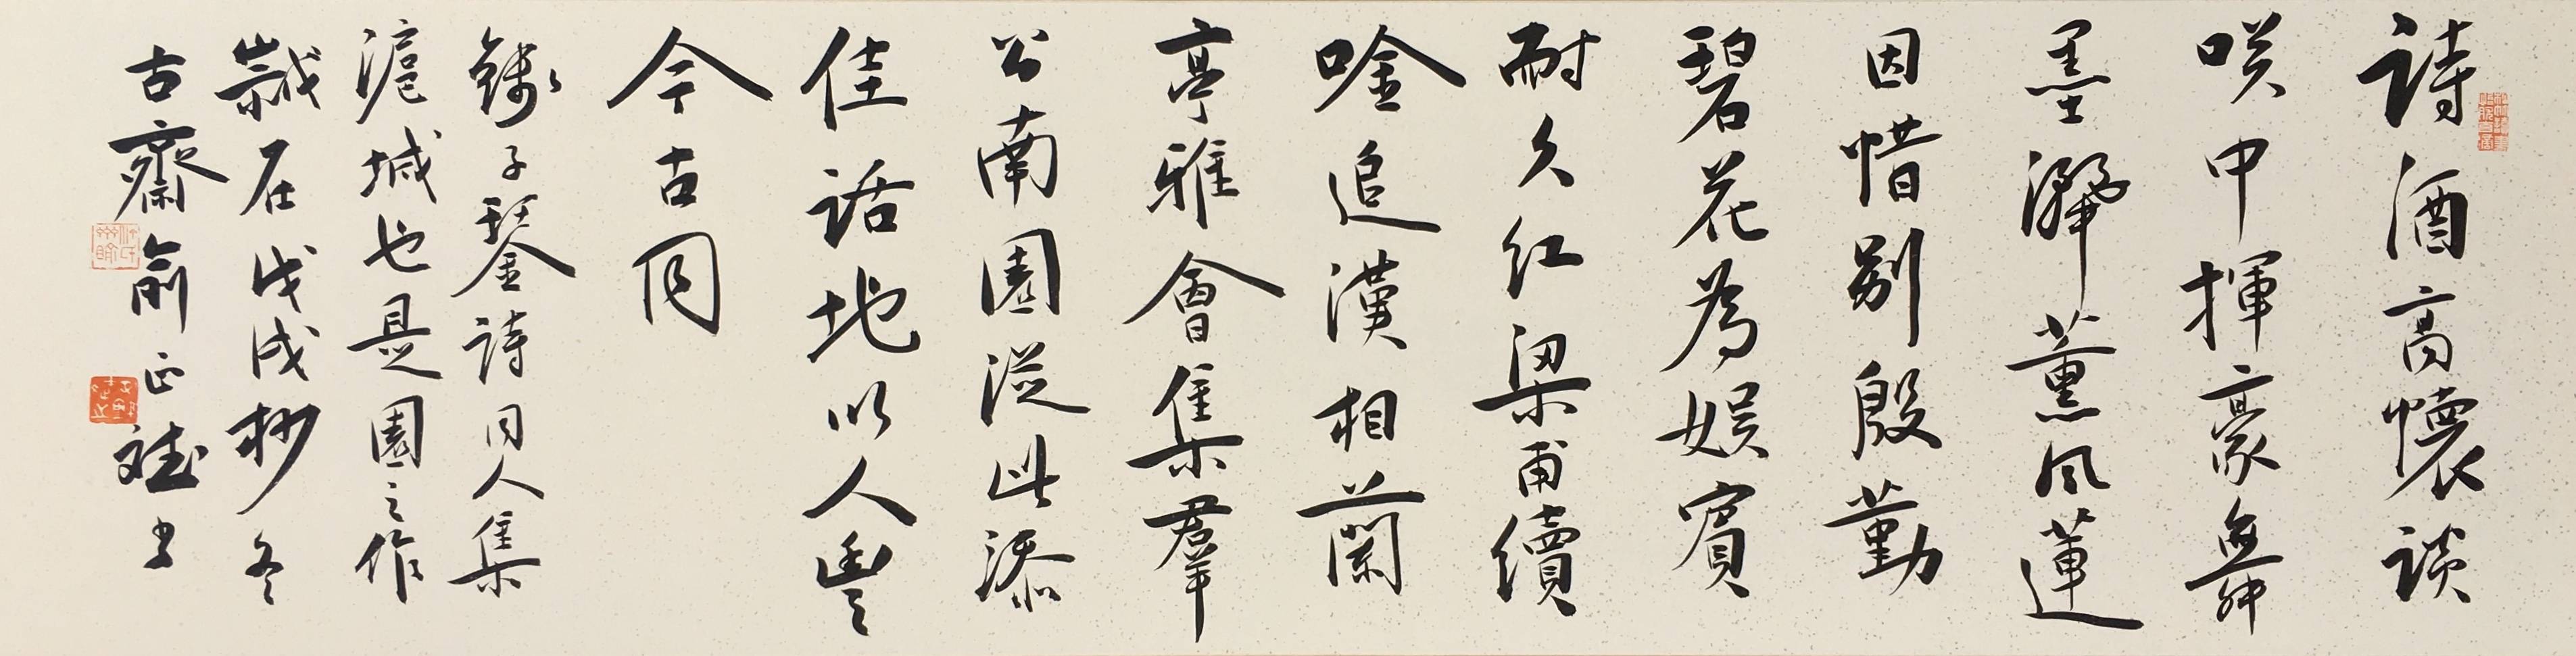 詩酒高懷談
咲中揮豪舞
墨薰風蓮
因惜別殷勤
碧花為娛賓
耐久紅梁甫續
唫追漢相蘭
亭雅會集羣
公南園從此添
佳話地以人豐
今古同
錄子詩同人集
滬城也是園之作
石戊戌杪冬
古齋俞正斌书